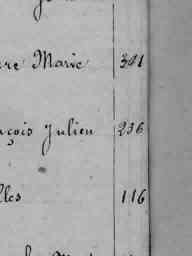 rre Marie 301
nçois Julien 236
lles 116